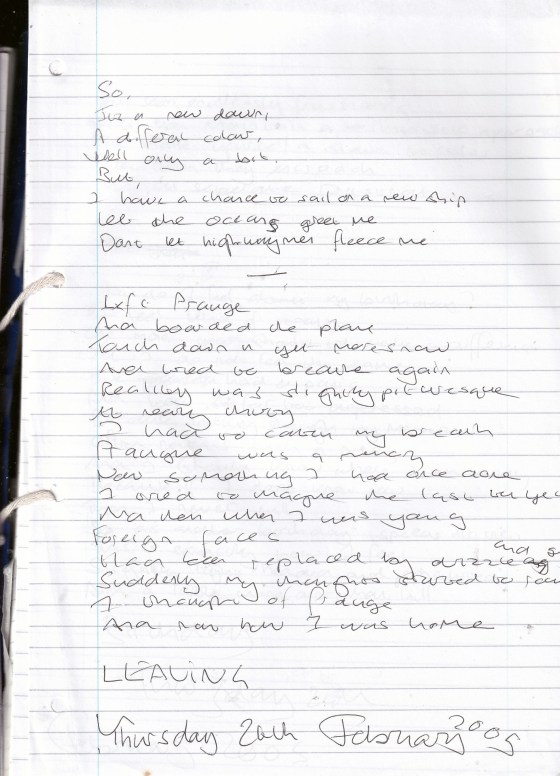 So,
Its a new dawn,
A different colour,
Well only a bit.
But,
I have a chance to sail on a new ship
Let the oceans greet me
Dont let highwaymen fleece me
I left Prague
And boarded the plane
Touch down n yet more snow
And tried to breathe again
Reality was slightly picturesque
I had to catch my breath
Prague was a memory
Now something I had once done
I tried to imagine the last
And then when I was young
Foreign faces
Had been replaced by drizzle and
Suddenly my thoughts started to
I thought of Prague
And now how I was home
LEAVING
Thursday 20th February 2005